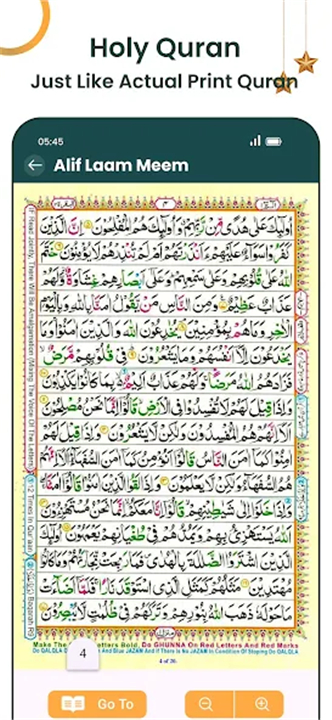 Holy Quran
Just Like Actual Print Quran
05:45
Alif Laam Meem
اُولٰٓئِكَ عَلٰى هُدًى مِّنْ رَّبِّهِمْ وَاُولٰٓئِكَ هُمُ الْمُفْلِحُوْنَ اِنَّ الَّذِيْنَ
كَفَرُوْا سَوَآءٌ عَلَيْهِمْ ءَاَنْذَرْتَهُمْ اَمْ لَمْ تُنْذِرْهُمْ لَا يُؤْمِنُوْنَ خَتَمَ
اللّٰهُ عَلٰى قُلُوْبِهِمْ وَعَلٰى سَمْعِهِمْ وَعَلٰٓى اَبْصَارِهِمْ غِشَاوَةٌ وَّلَهُمْ
عَذَابٌ عَظِيْمٌ وَمِنَ النَّاسِ مَنْ يَّقُوْلُ اٰمَنَّا بِاللّٰهِ وَبِالْيَوْمِ
الْاٰخِرِ وَمَا هُمْ بِمُؤْمِنِيْنَ يُخٰدِعُوْنَ اللّٰهَ وَالَّذِيْنَ اٰمَنُوْا وَمَا
يَخْدَعُوْنَ اِلَّآ اَنْفُسَهُمْ وَمَا يَشْعُرُوْنَ فِيْ قُلُوْبِهِمْ مَّرَضٌ
فَزَادَهُمُ اللّٰهُ مَرَضًا وَلَهُمْ عَذَابٌ اَلِيْمٌ بِمَا كَانُوْا يَكْذِبُوْنَ
وَاِذَا قِيْلَ لَهُمْ لَا تُفْسِدُوْا فِي الْاَرْضِ قَالُوْٓا اِنَّمَا نَحْنُ مُصْلِحُوْنَ
اَلَآ اِنَّهُمْ هُمُ الْمُفْسِدُوْنَ وَلٰكِنْ لَّا يَشْعُرُوْنَ وَاِذَا قِيْلَ لَهُمْ
اٰمِنُوْا كَمَآ اٰمَنَ النَّاسُ قَالُوْٓا اَنُؤْمِنُ كَمَآ اٰمَنَ السُّفَهَآءُ اَلَآ اِنَّهُمْ
هُمُ السُّفَهَآءُ وَلٰكِنْ لَّا يَعْلَمُوْنَ وَاِذَا لَقُوا الَّذِيْنَ اٰمَنُوْا قَالُوْٓا اٰمَنَّا
وَاِذَا خَلَوْا اِلٰى شَيٰطِيْنِهِمْ قَالُوْٓا اِنَّا مَعَكُمْ اِنَّمَا نَحْنُ مُسْتَهْزِءُوْنَ
اَللّٰهُ يَسْتَهْزِئُ بِهِمْ وَيَمُدُّهُمْ فِيْ طُغْيَانِهِمْ يَعْمَهُوْنَ اُولٰٓئِكَ
الَّذِيْنَ اشْتَرَوُا الضَّلٰلَةَ بِالْهُدٰى فَمَا رَبِحَتْ تِّجَارَتُهُمْ وَمَا كَانُوْا
مُهْتَدِيْنَ مَثَلُهُمْ كَمَثَلِ الَّذِي اسْتَوْقَدَ نَارًا فَلَمَّآ اَضَآءَتْ
مَا حَوْلَهٗ ذَهَبَ اللّٰهُ بِنُوْرِهِمْ وَتَرَكَهُمْ فِيْ ظُلُمٰتٍ لَّا يُبْصِرُوْنَ
Make The Letters Bold, Do GHUNNA On Red Letters And Red Marks
4
4 of 26
Go To